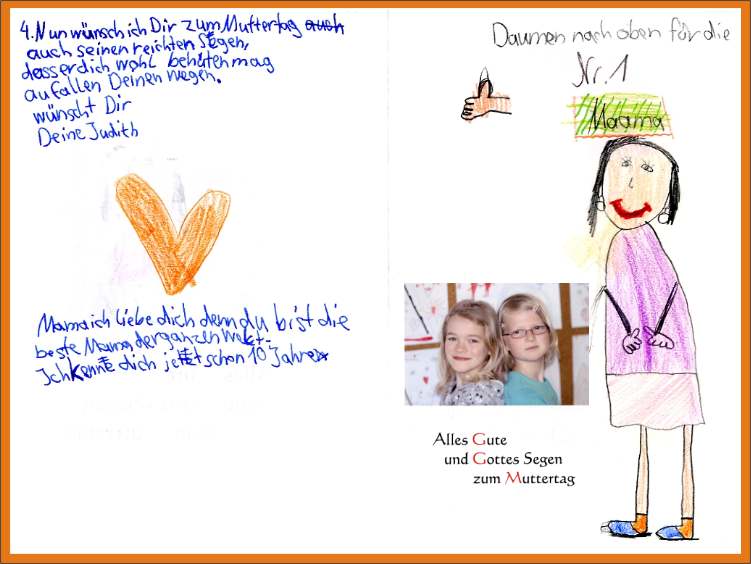 4. Nun wünsch ich Dir zum Muttertag auch
auch seinen reichten Segen,
dass er dich wohl behüten mag
auf allen Deinen wegen.
wünscht Dir
Deine Judith
Mama ich liebe dich denn du bist die
beste Mama der ganzen Welt.
Ich kenne dich jetzt schon 10 Jahre
Daumen nach oben für die
Nr. 1
Maama
Alles Gute
und Gottes Segen
zum Muttertag